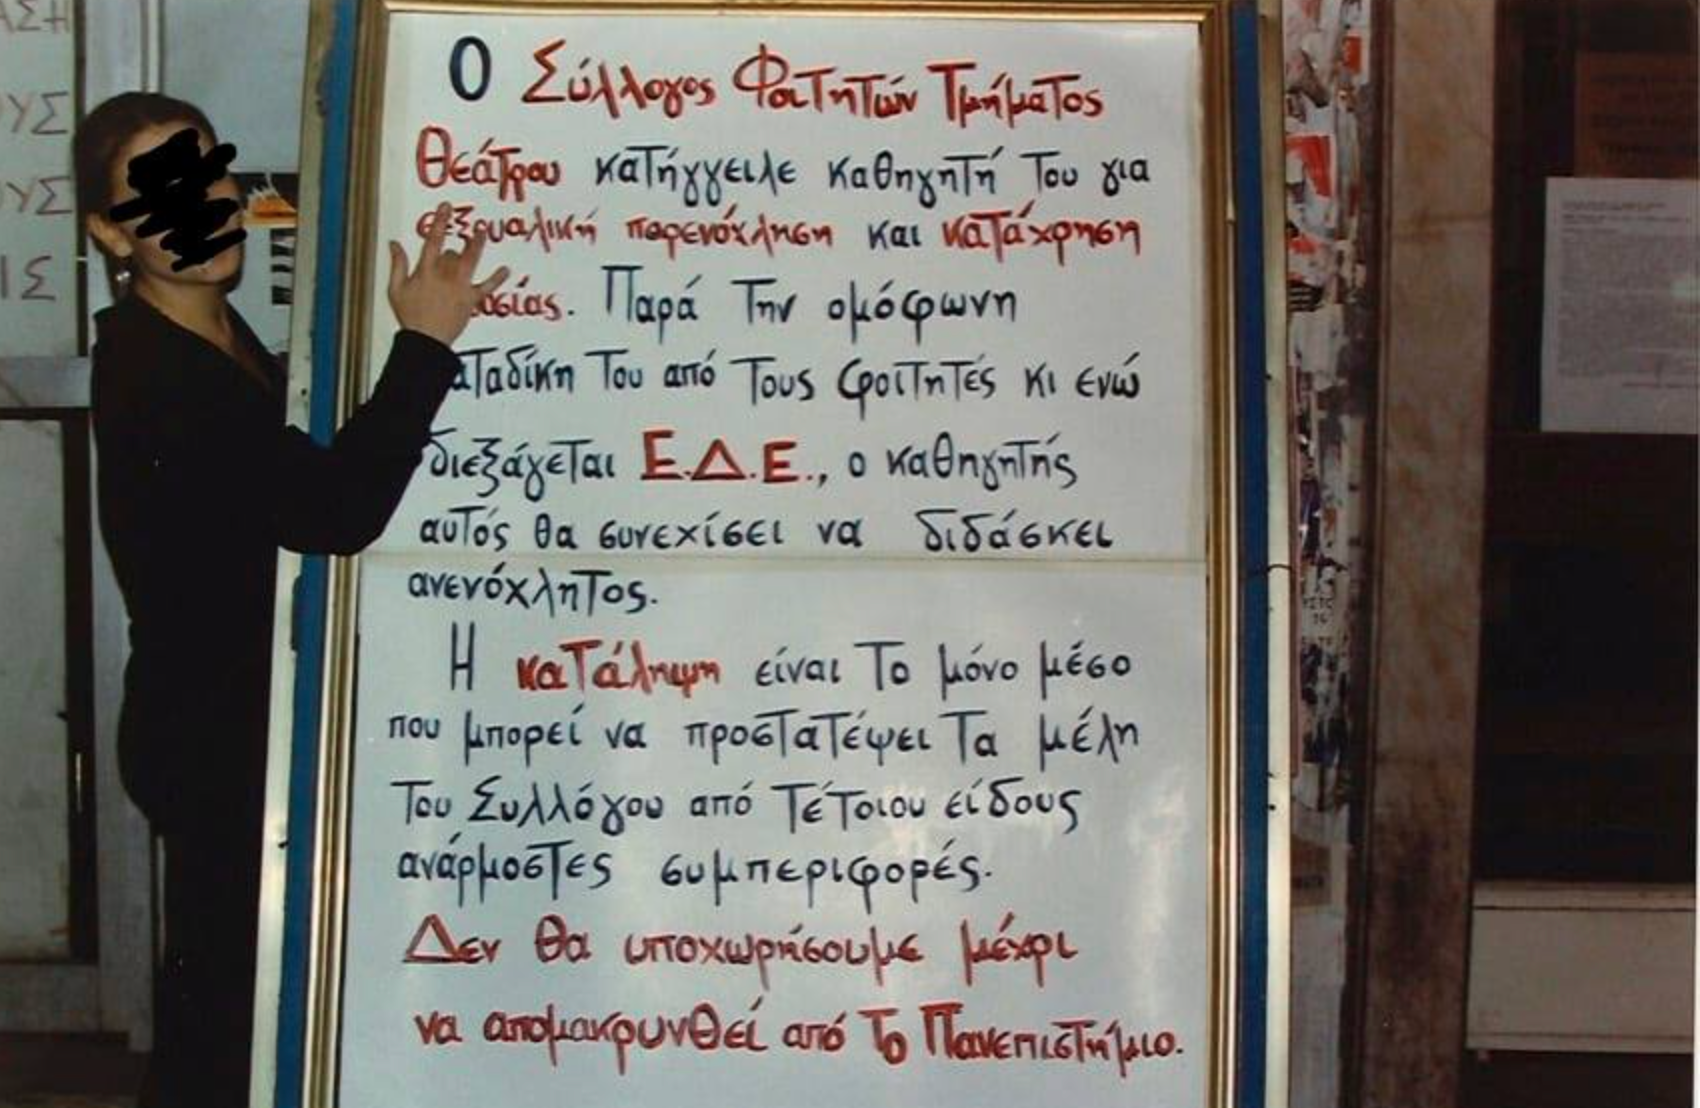 ΑΣΗ
ΥΣ
ΟΥΣ
ΙΣ
Ο Σύλλογος Φοιτητών Τμήματος
Θεάτρου κατήγγειλε καθηγητή του για
σεξουαλική παρενόχληση και κατάχρηση
σίας. Παρά την ομόφωνη
αταδίκη του από τους φοιτητές κι ενώ
διεξάγεται Ε.Δ.Ε., ο καθηγητής
αυτός θα συνεχίσει να διδάσκει
ανενόχλητος.
Η κατάληψη είναι το μόνο μέσο
που μπορεί να προστατέψει τα μέλη
του Συλλόγου από τέτοιου είδους
ανάρμοστες συμπεριφορές.
Δεν θα υποχωρήσουμε μέχρι
να απομακρυνθεί από το Πανεπιστήμιο.